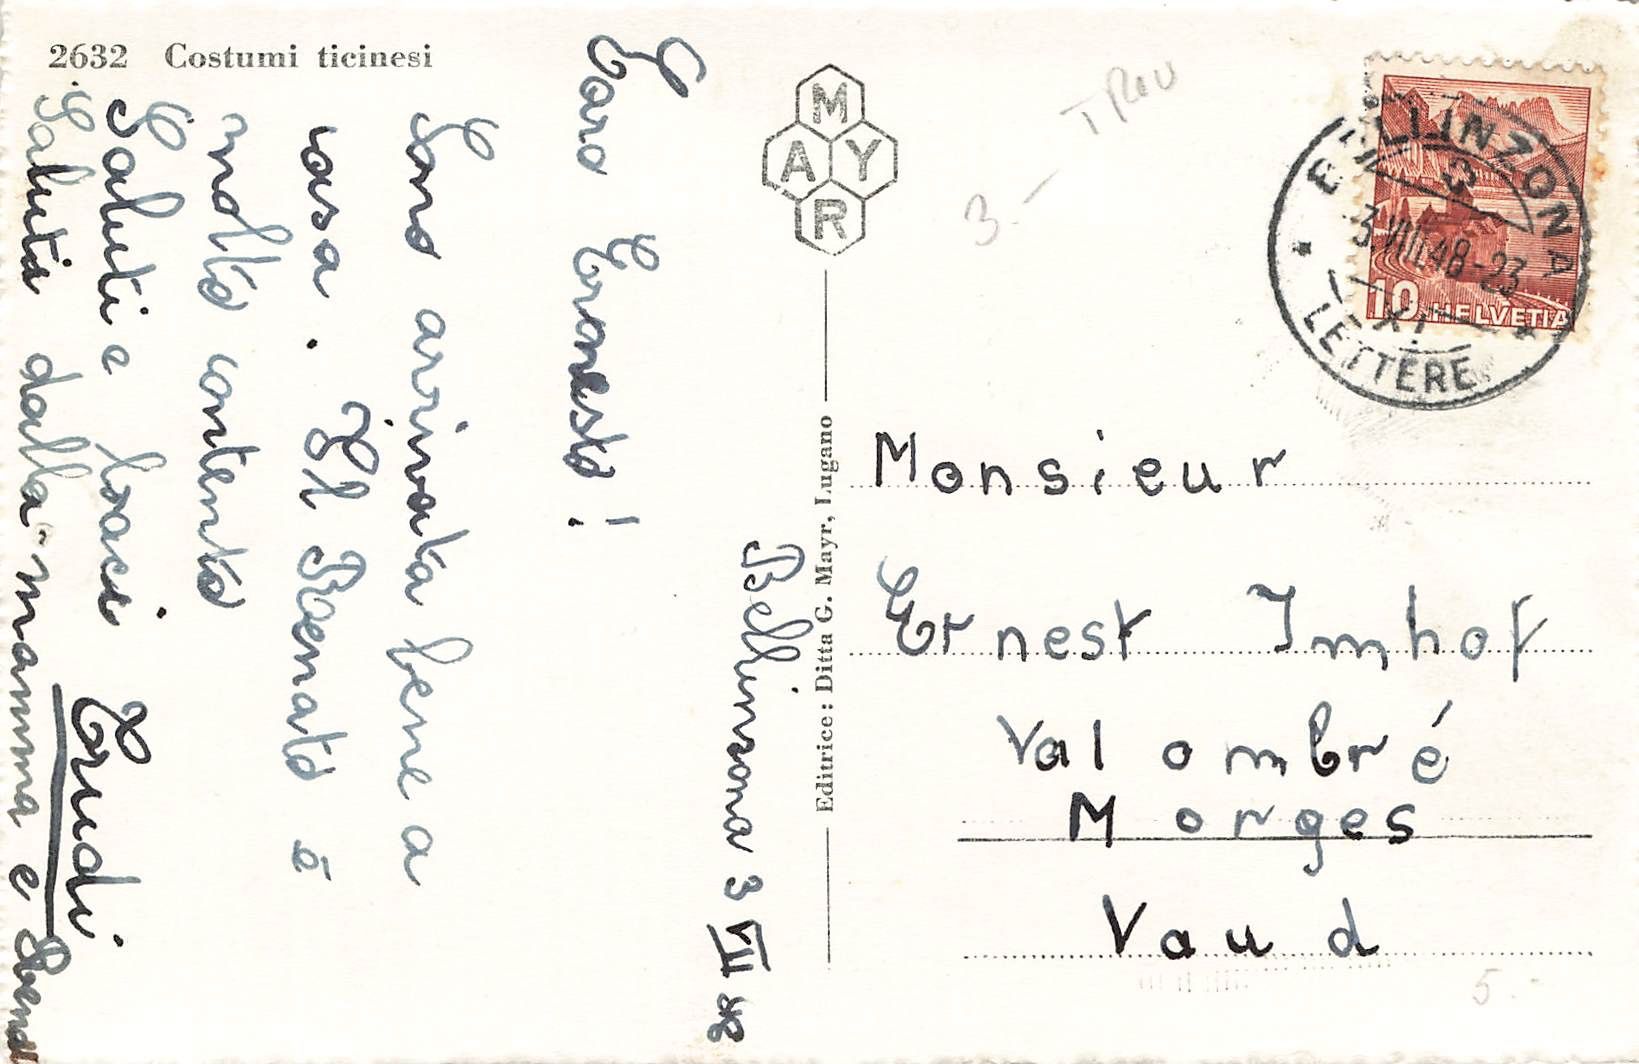 2632 Costumi ticinesi
Bellinzona 3 VII 48
Caro Ernesto!
Sono arrivata bene a
casa. El Renato è
molto contento
Saluti e baci
Trudi
Saluti dalla mamma e
MAYR
Editrice: Ditta G. Mayr, Lugano
3.-
BELLINZONA
3
3.VIII.48-23
XI
LETTERE
10 HELVETIA
Monsieur
Ernest Imhof
Valombré
Morges
Vaud
5.-